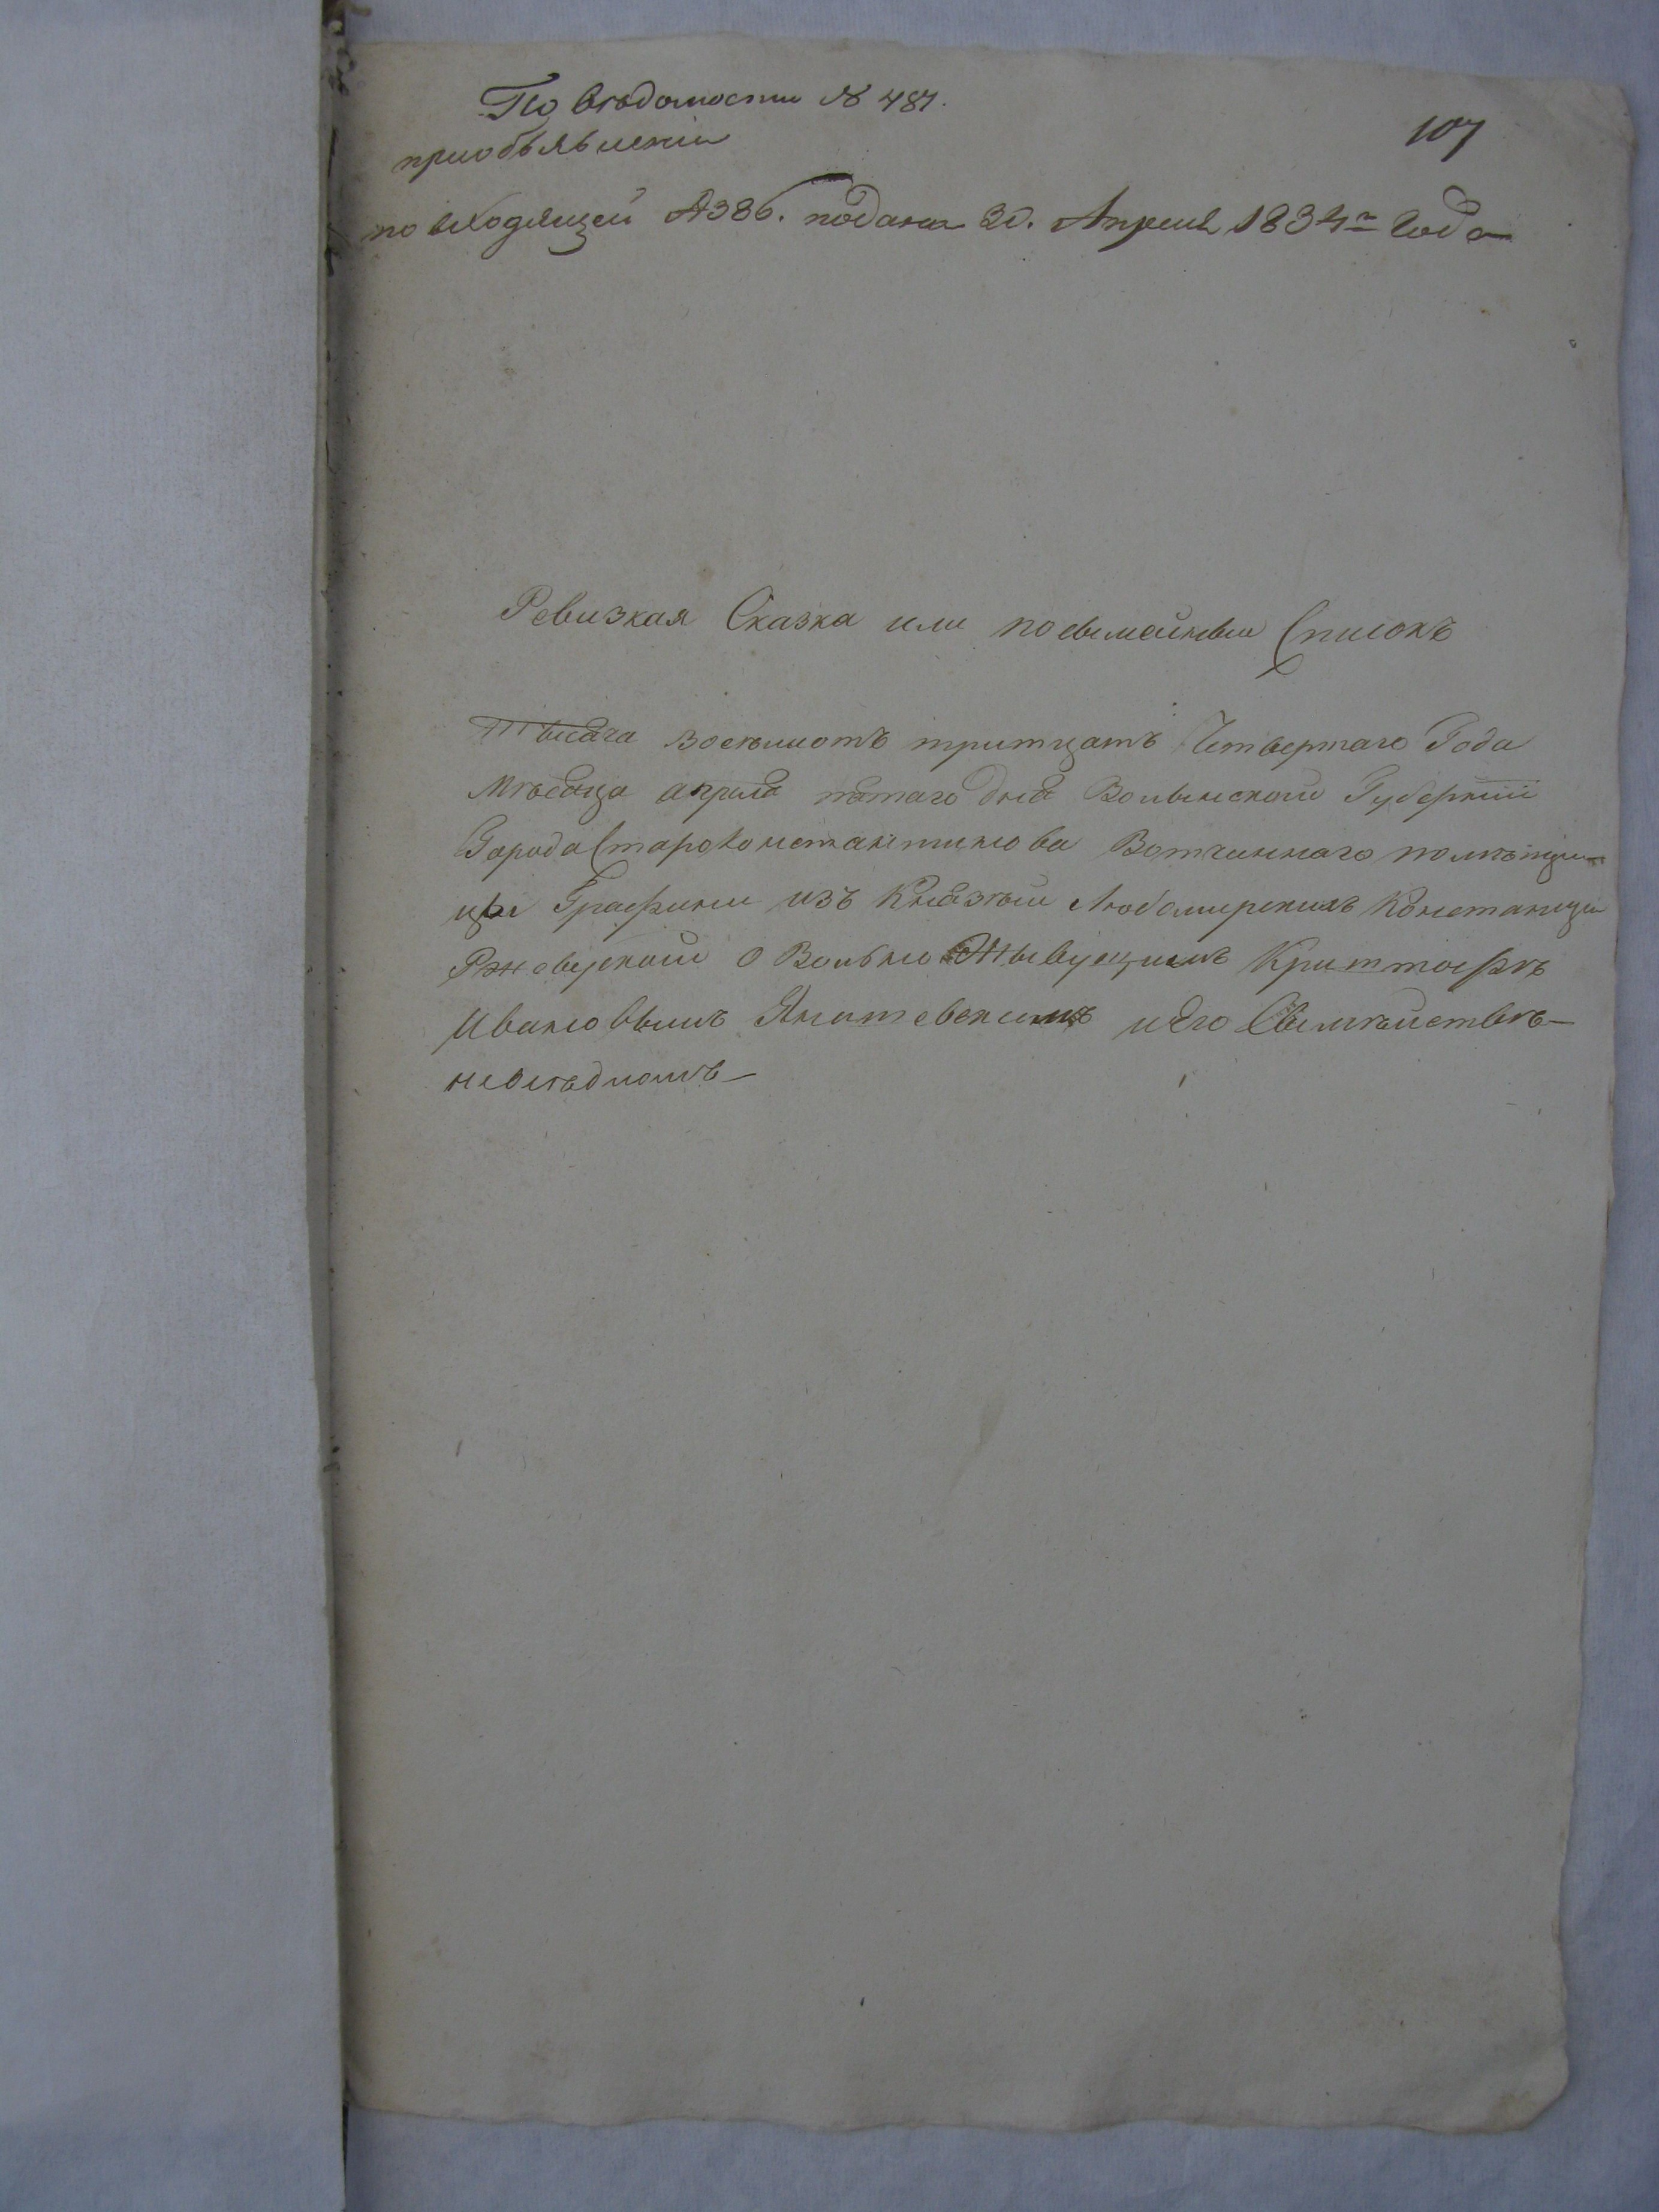 По вѣдомости № 481.
107
приобъявленіи
по входящей №386. подана 30. Апреля 1834го Года
Ревизкая Сказка или посемейный Списокъ
Тысяча восемьсотъ тритцать Четвертаго Года
Мѣсяца апреля пятаго дня Волынской Губерніи
Города Староконстантинова Вотчиннаго помѣщи-
цы Графини изъ Князѣй Любомирскихъ Констанціи
Ржевуской О Вольно Живущимъ Криштофѣ
Ивановымъ Янишевскимъ и Его Сѣмѣйствѣ
неосѣдномъ